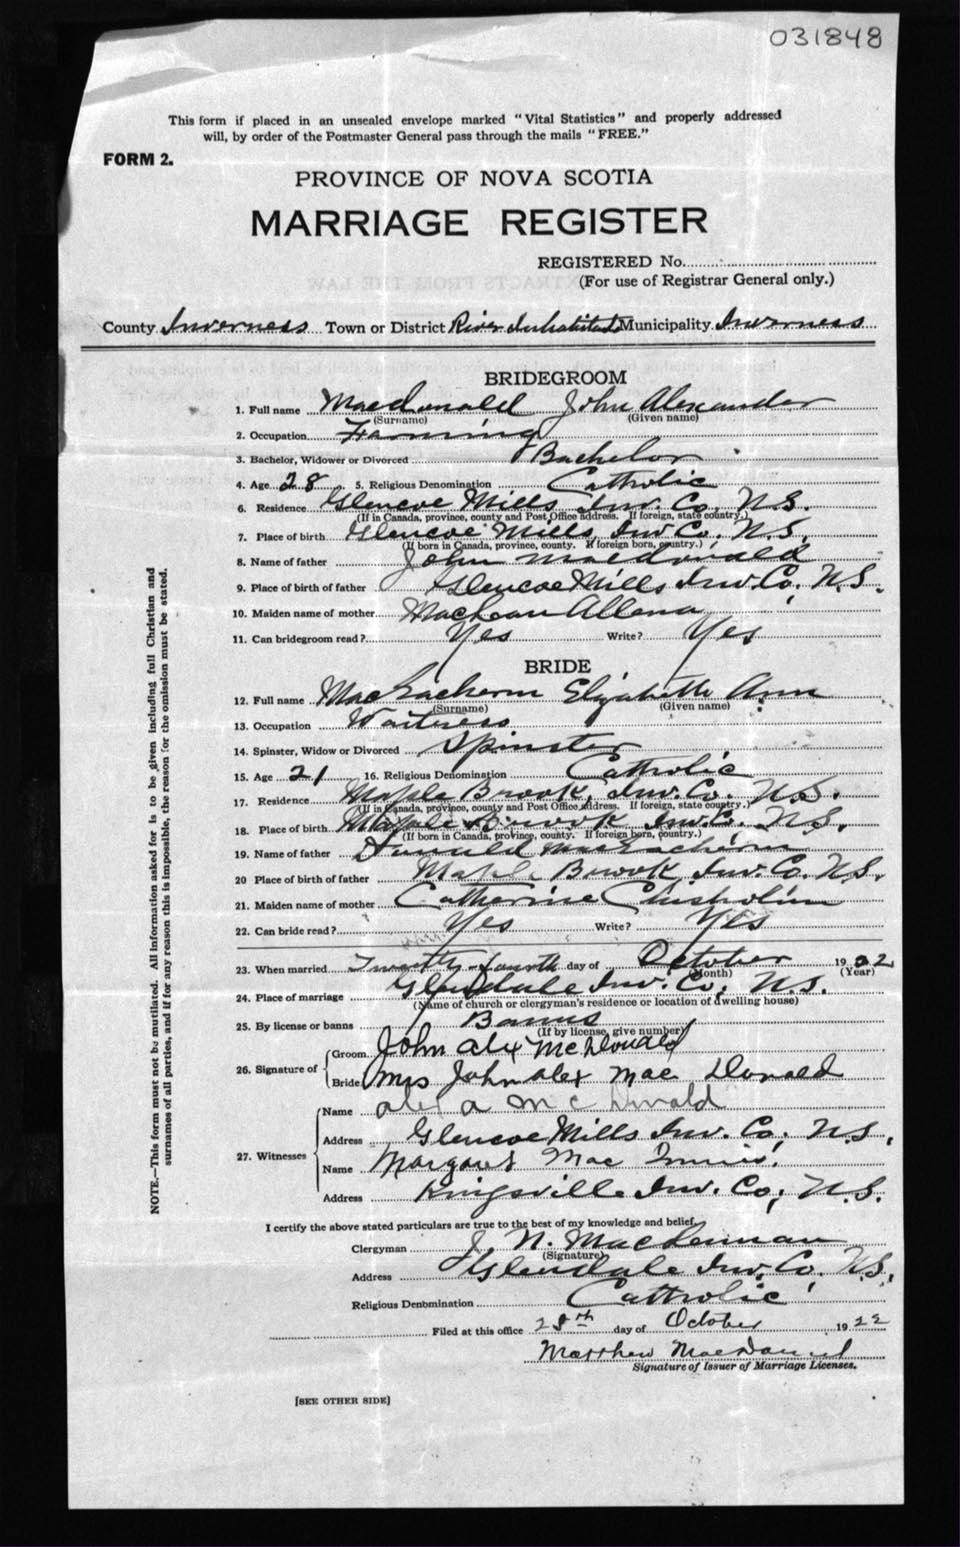 031848
This form if placed in an unsealed envelope marked "Vital Statistics" and properly addressed
will, by order of the Postmaster General pass through the mails "FREE."
FORM 2.
PROVINCE OF NOVA SCOTIA
MARRIAGE REGISTER
REGISTERED No.
(For use of Registrar General only.)
County Inverness Town or District River Inhabitants Municipality Inverness
BRIDEGROOM
1. Full name Macdonald John Alexander
(Surname) (Given name)
2. Occupation Farming
3. Bachelor, Widower or Divorced Bachelor
4. Age 28 5. Religious Denomination Catholic
6. Residence Glencoe Mills, Inv. Co, N.S.
(If in Canada, province, county and Post Office address. If foreign, state country.)
7. Place of birth Glencoe Mills, Inv Co. N.S.
(If born in Canada, province, county. If foreign born, country.)
8. Name of father John Macdonald
9. Place of birth of father Glencoe Mills Inv. Co, N.S.
10. Maiden name of mother Allena
11. Can bridegroom read? Yes Write? Yes
BRIDE
12. Full name MacEachern Elizabeth Ann
(Surname) (Given name)
13. Occupation Waitress
14. Spinster, Widow or Divorced Spinster
15. Age 21 16. Religious Denomination Catholic
17. Residence Maple Brook, Inv. Co. N.S.
(If in Canada, province, county and Post Office address. If foreign, state country.)
18. Place of birth Maple Brook Inv. Co. N.S.
(If born in Canada, province, county. If foreign born, country.)
19. Name of father Donald MacEachern
20 Place of birth of father Maple Brook, Inv. Co. N.S.
21. Maiden name of mother Catherine Chisholm
22. Can bride read? Yes Write? Yes
23. When married Twenty-fourth day of October 1922
(Month) (Year)
24. Place of marriage Glendale Inv. Co, N.S.
(Name of church or clergyman's residence or location of dwelling house)
25. By license or banns Banns
(If by license, give number)
26. Signature of
Groom John Alex McDonald
Bride Mrs John Alex Mac Donald
27. Witnesses
Name Alex A McDonald
Address Glencoe Mills Inv. Co, N.S.
Name Margaret Mac Innis
Address Kingsville Inv. Co, N.S.
I certify the above stated particulars are true to the best of my knowledge and belief.
Clergyman J. N. MacLennan
(Signature)
Address Glendale Inv. Co. N.S.
Religious Denomination Catholic
Filed at this office 28th day of October 1922
Matthew
Signature of Issuer of Marriage Licenses.
[SEE OTHER SIDE]
NOTE.—This form must not be mutilated. All information asked for is to be given including full Christian and
surnames of all parties, and if for any reason this is impossible, the reason for the omission must be stated.